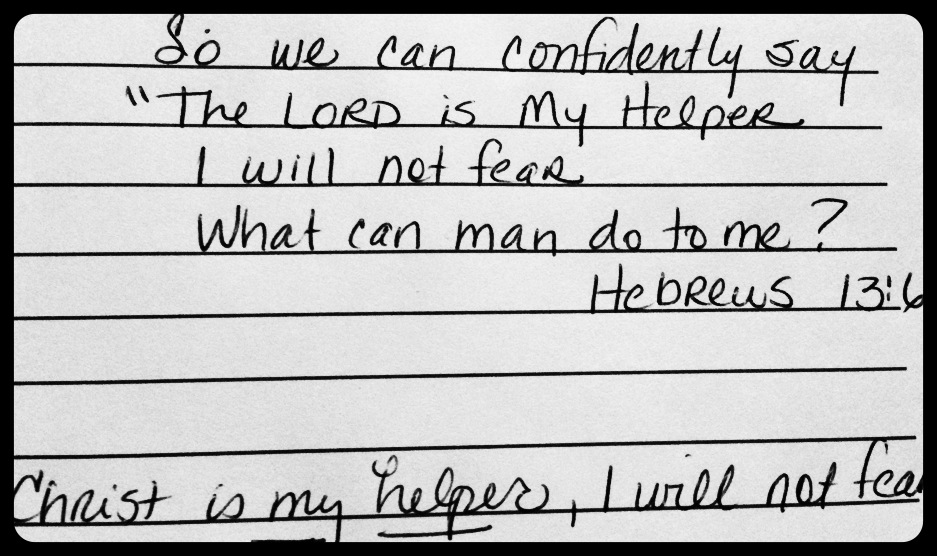 So we can confidently say
"The LORD is My Helper
I will not fear
What can man do to me?
Hebrews 13:6
Christ is my helper, I will not fear